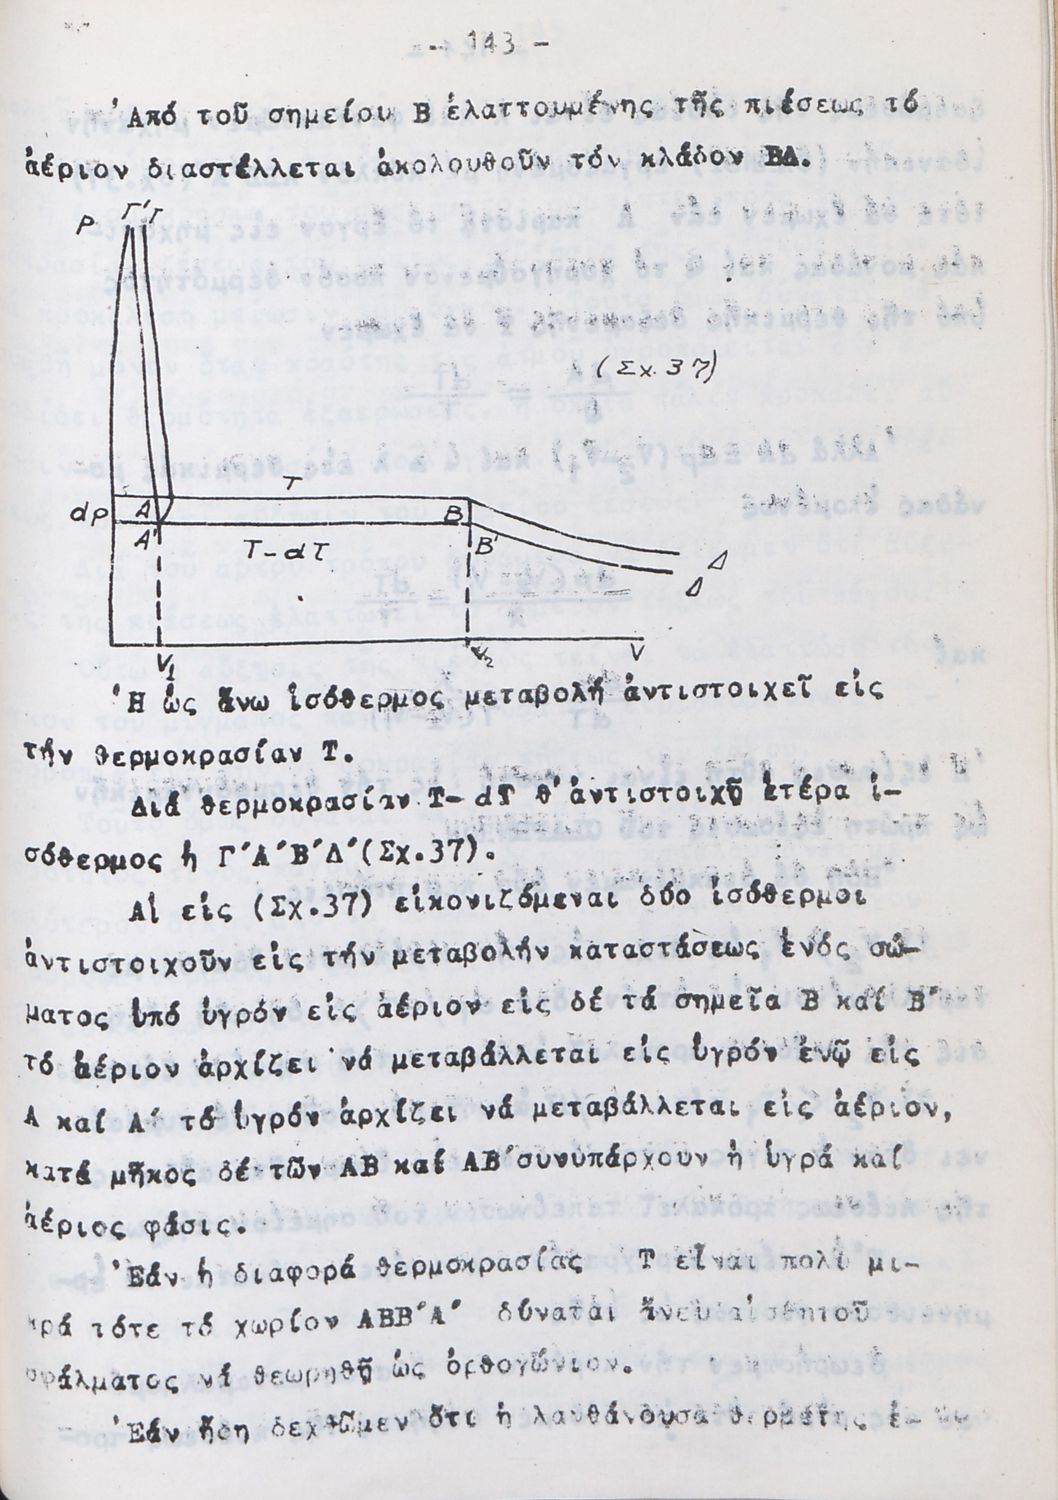 - 143 -
Ἀπό τοῦ σημείου Β ἐλαττουμένης τῆς πιέσεως τό
ἀέριον διαστέλλεται ἀκολουθοῦν τόν κλάδον ΒΔ.
P Γ' Γ
(Σχ. 37)
T
dp A B
A' T-dT B'
Δ
Δ
V₁ V₂ V
Ἡ ὡς ἄνω ἰσόθερμος μεταβολή ἀντιστοιχεῖ εἰς
τήν θερμοκρασίαν Τ.
Διά θερμοκρασίαν T-dT θ'ἀντιστοιχῇ ἑτέρα ἰ-
σόθερμος ἡ Γ'Α'Β'Δ'(Σχ.37).
Αἱ εἰς (Σχ.37) εἰκονιζόμεναι δύο ἰσόθερμοι
ἀντιστοιχοῦν εἰς τήν μεταβολήν καταστάσεως ἑνός σώ-
ματος ὑπό ὑγρόν εἰς ἀέριον εἰς δέ τά σημεῖα Β καί Β'
τό ἀέριον ἀρχίζει νά μεταβάλλεται εἰς ὑγρόν ἐνῷ εἰς
Α καί Α' τό ὑγρόν ἀρχίζει νά μεταβάλλεται εἰς ἀέριον,
κατά μῆκος δέ τῶν ΑΒ καί ΑΒ' συνυπάρχουν ἡ ὑγρά καί
ἀέριος φάσις.
Ἐάν ἡ διαφορά θερμοκρασίας Τ εἶναι πολύ μι-
κρά τότε τό χωρίον ΑΒΒ'Α' δύναται ἄνευ αἰσθητοῦ
σφάλματος νά θεωρηθῇ ὡς ὀρθογώνιον.
Ἐάν ἤδη δεχθῶμεν ὅτι ἡ λανθάνουσα θερμότης ἐ-